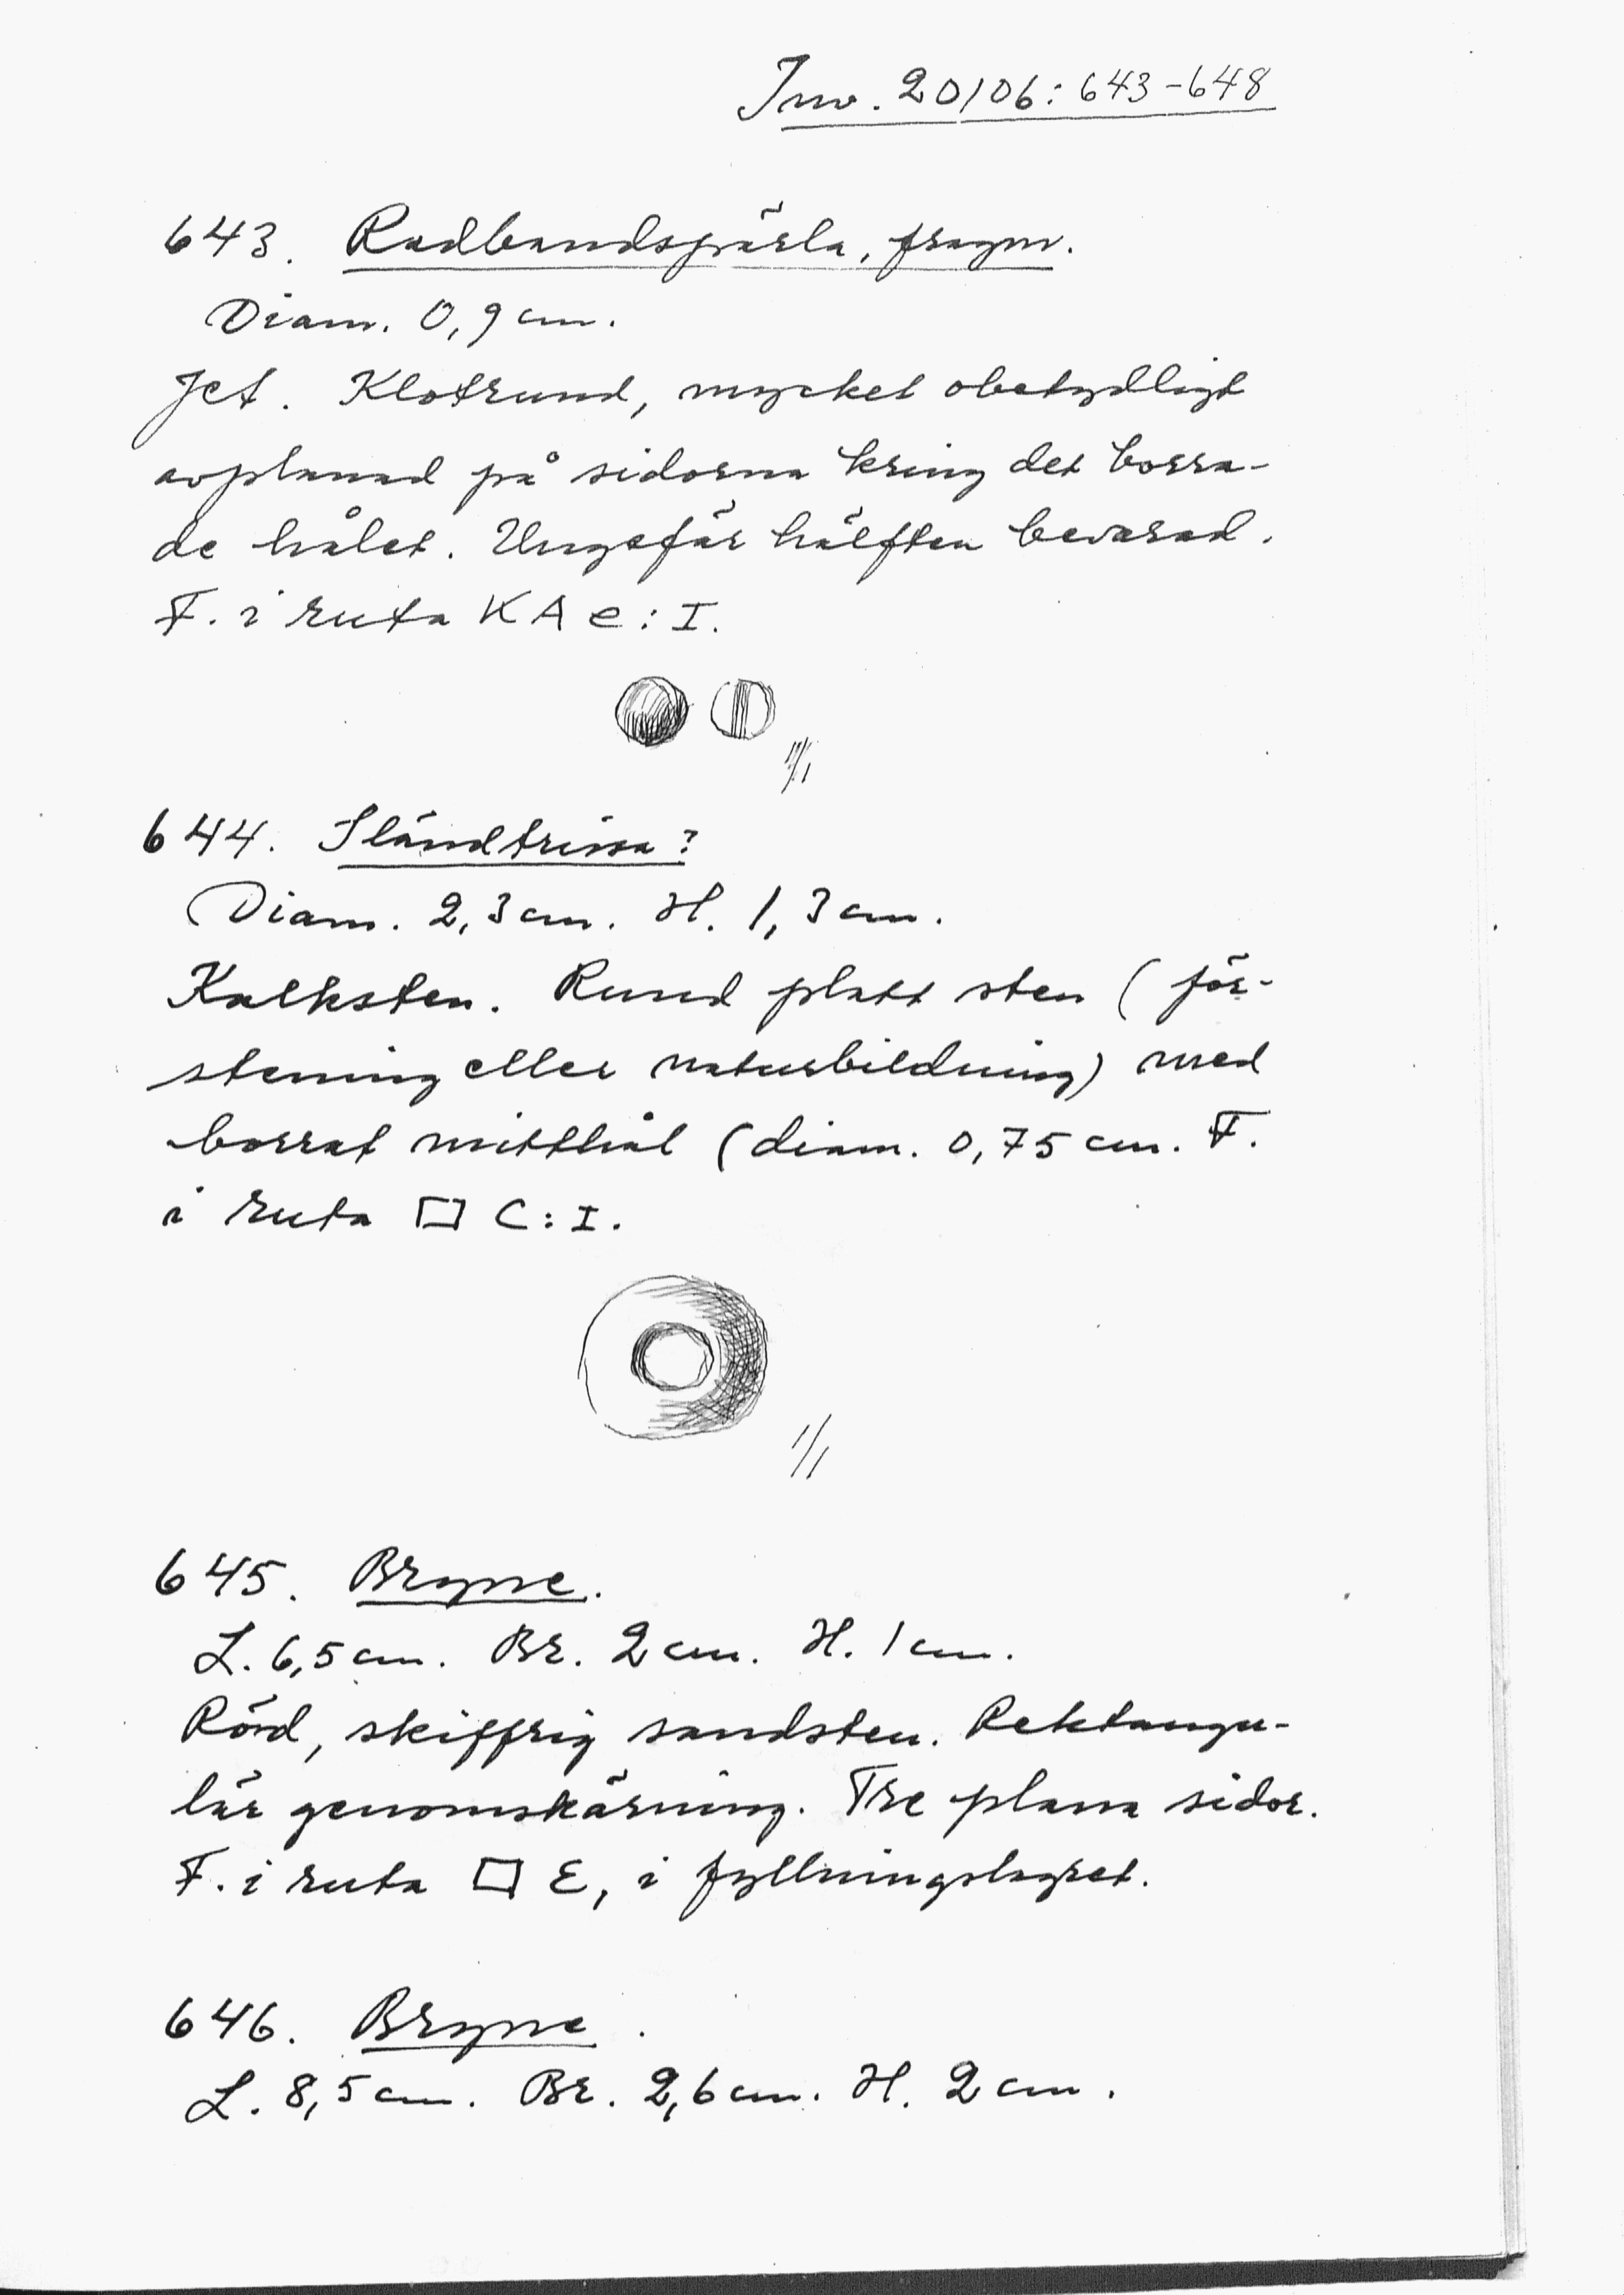 Inv. 20106:643-648
643. Radbandspärla, fragm.
Diam. 0,9 cm.
Jet. Klotrund, mycket obetydligt
avplanad på sidorna kring det borra-
de hålet. Ungefär hälften bevarad.
F. i ruta KA e: I.
1/1
644. Sländtrissa?
Diam. 2,3 cm. H. 1,3 cm.
Kalksten. Rund platt sten (för-
stening eller naturbildning) med
borrat mitthål (diam. 0,75 cm. F.
i ruta □ C: I.
1/1
645. Bryne.
L. 6,5 cm. Br. 2 cm. H. 1 cm.
Röd, skiffrig sandsten. Rektangu-
lär genomskärning. Tre plana sidor.
F. i ruta □ E, i fyllningslagret.
646. Bryne.
L. 8,5 cm. Br. 2,6 cm. H. 2 cm.